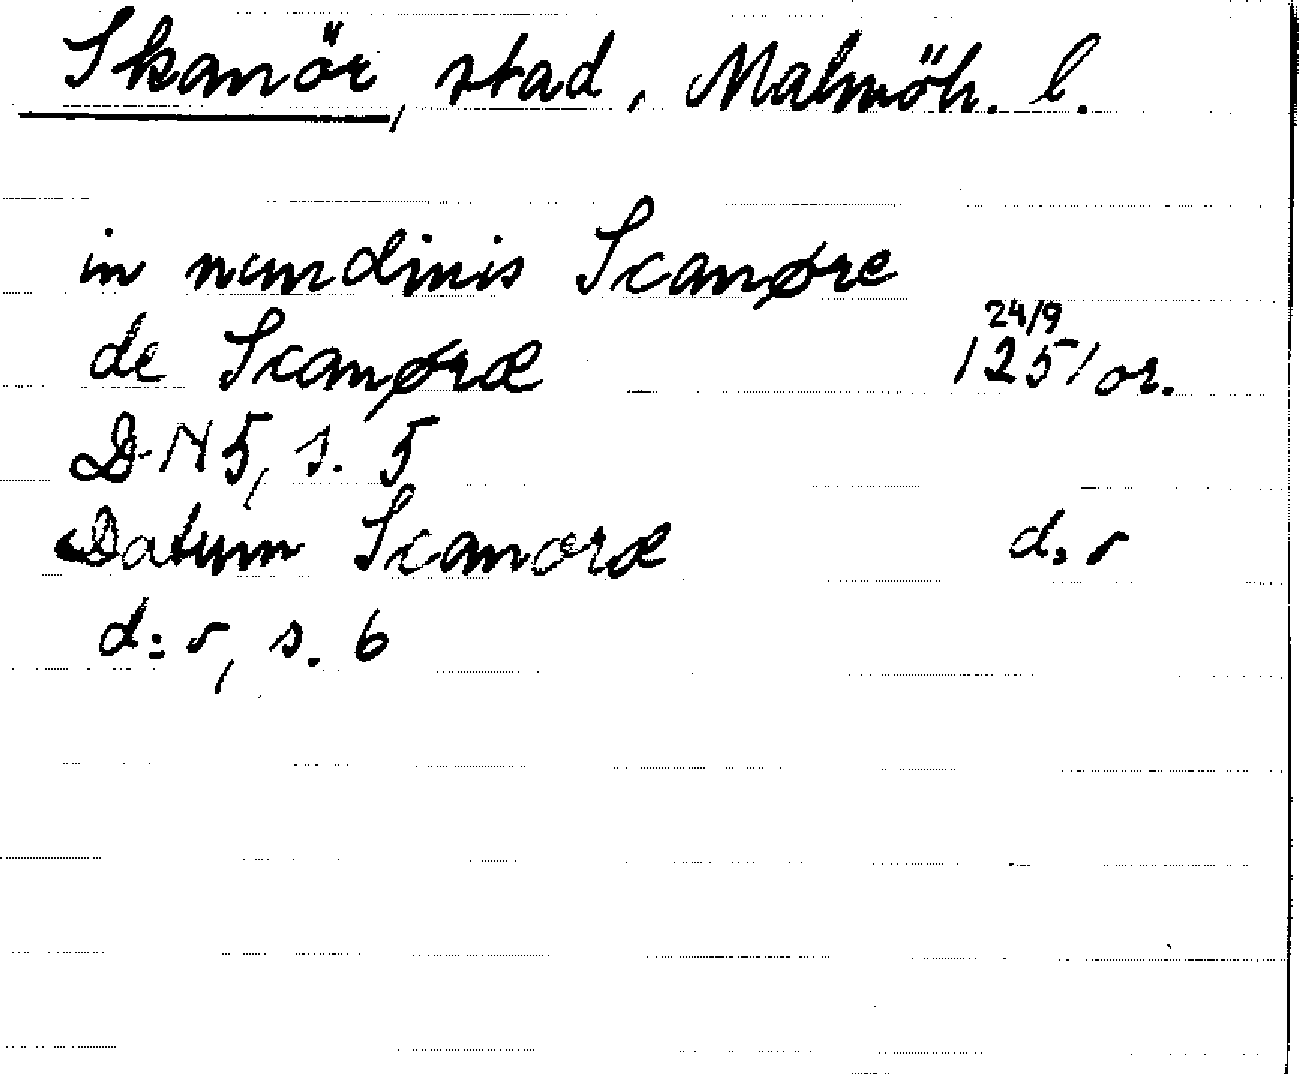 Skanör, stad, Malmöh. l.
in nundinis Scanøre
24/9
de Scanøræ 1251 or.
DN 5, s. 5
Datum Scanoræ d:o
d:o, s. 6